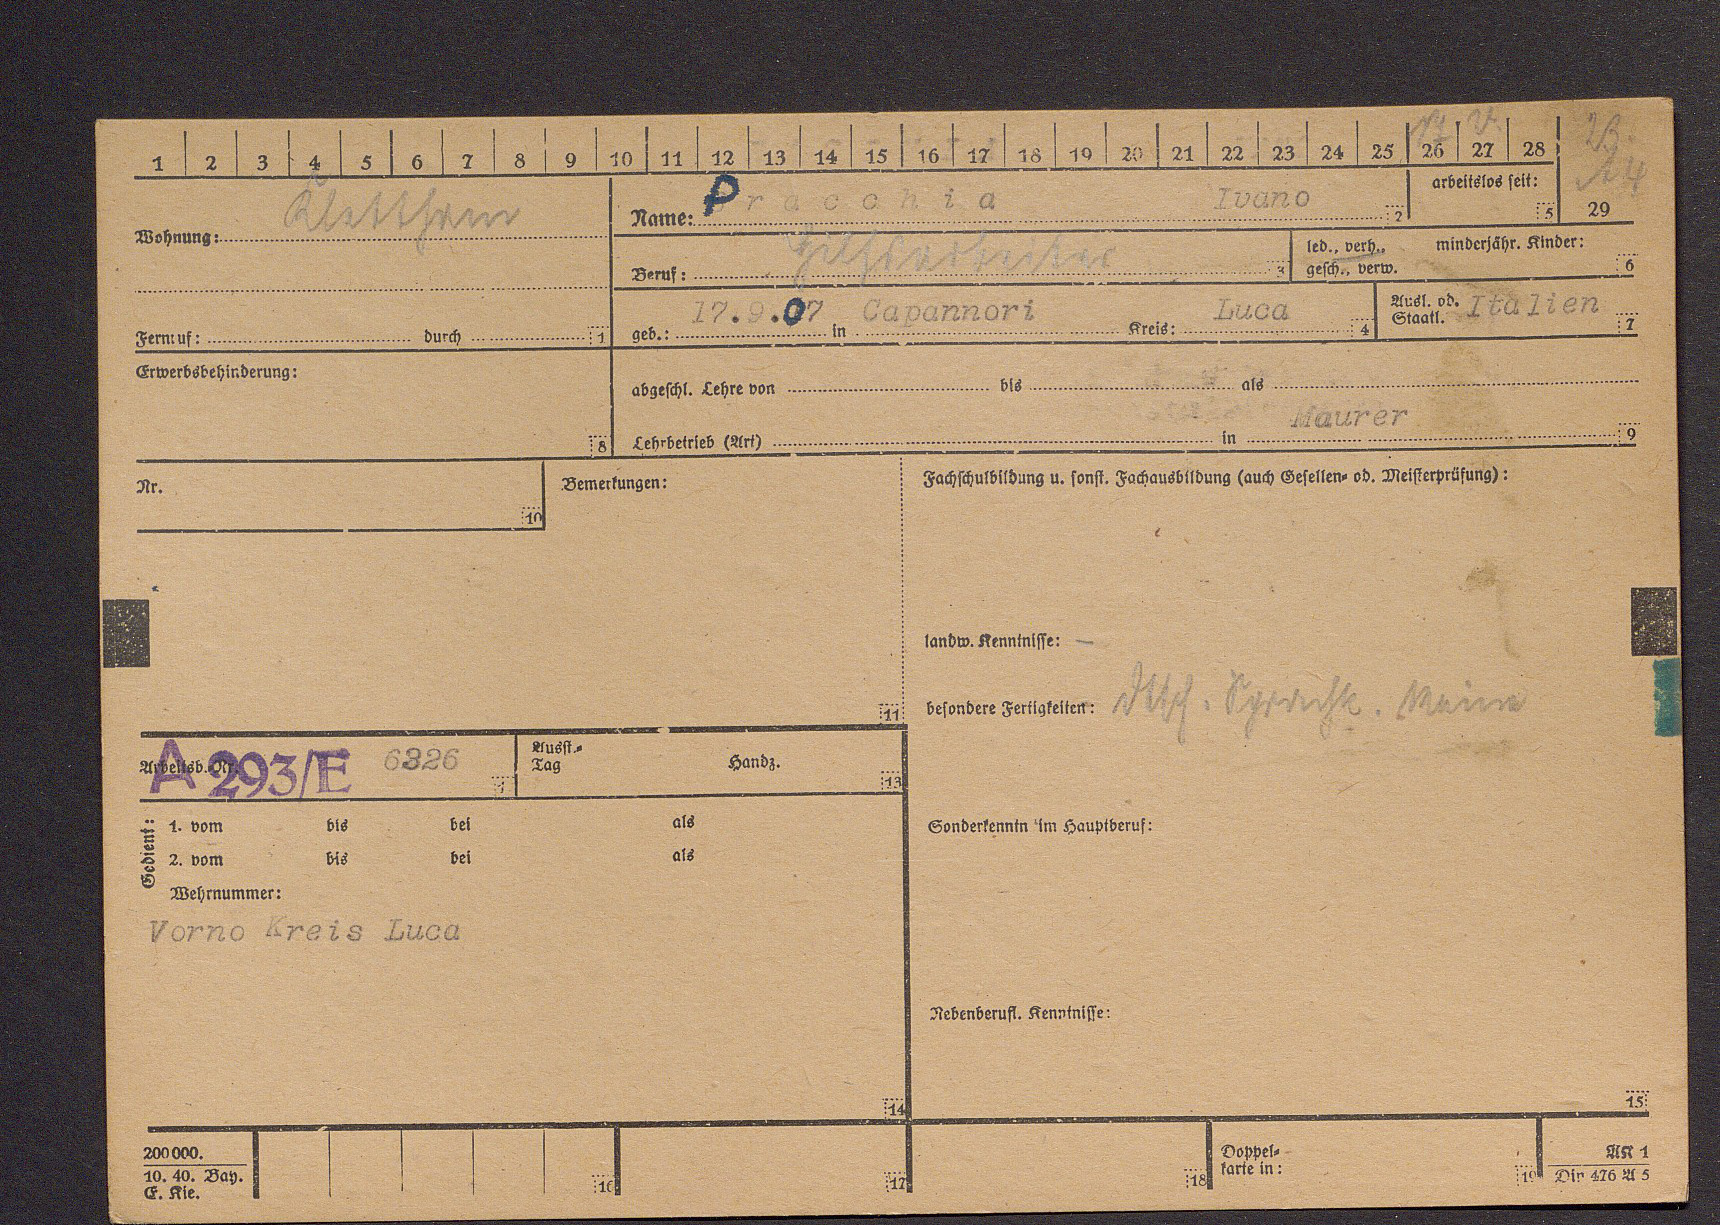 1 2 3 4 5 6 7 8 9 10 11 12 13 14 15 16 17 18 19 20 21 22 23 24 25 26 27 28
Wohnung: Klettham
Name: Pracchia Ivano 2
arbeitslos seit: 5
29
Beruf: Hilfsarbeiter 3
led., verh., gesch., verw.
minderjähr. Kinder: 6
Fernruf: durch 1
geb.: 17.9.07 in Capannori Kreis: Luca 4
Ausl. od. Staatl. Italien 7
Erwerbsbehinderung: 8
abgeschl. Lehre von bis als
Maurer
Lehrbetrieb (Art) in 9
Nr. 10
Bemerkungen: 11
Fachschulbildung u. sonst. Fachausbildung (auch Gesellen- od. Meisterprüfung):
landw. Kenntnisse: —
besondere Fertigkeiten: dtsch. Sprachk.
Arbeitsb.-Nr. A 293/E 6326
Ausst.-Tag Handz. 13
Gedient: 1. vom bis bei als
2. vom bis bei als
Wehrnummer:
Vorno Kreis Luca
14
Sonderkenntn im Hauptberuf:
Nebenberufl. Kenntnisse:
15
200000.
10. 40. Bay.
E. Kie.
16 17 18
Doppelkarte in: 19
AK 1
Din 476 A 5